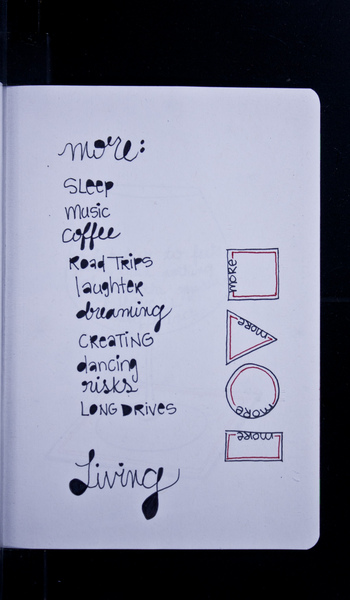 more:
SLeep
music
coffee
Road TRips
laughter
dreaming
CReaTiNG
dancing
risks
LONG DRiVes
Living
MORE
MORE
MORE
MORE